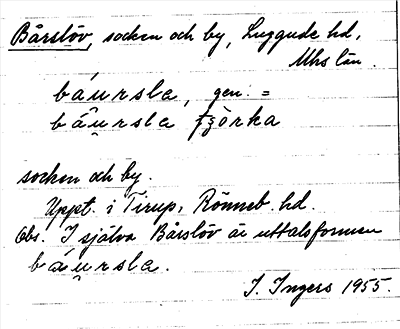 Bårslöv, socken och by, Luggude hd,
Mhs län.
báu̯rsla, gen. =
báu̯rsla
socken och by.
Uppt. i Tirup, Rönneb. hd.
Obs. I själva Bårslöv är uttalsformen
báu̯rsla.
I. Ingers 1955.